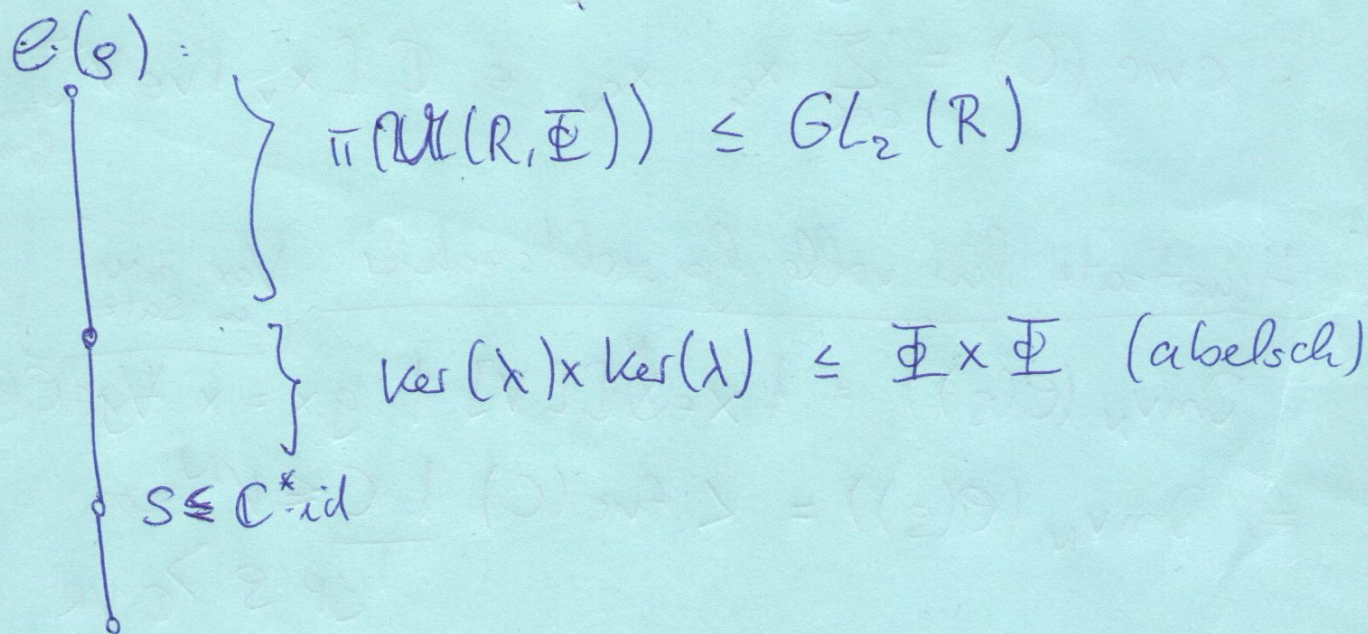 C(ρ) :
π(𝔘(R,Φ)) ≤ GL₂(R)
ker(λ)×ker(λ) ≤ Φ×Φ (abelsch)
S ≤ ℂ*·id